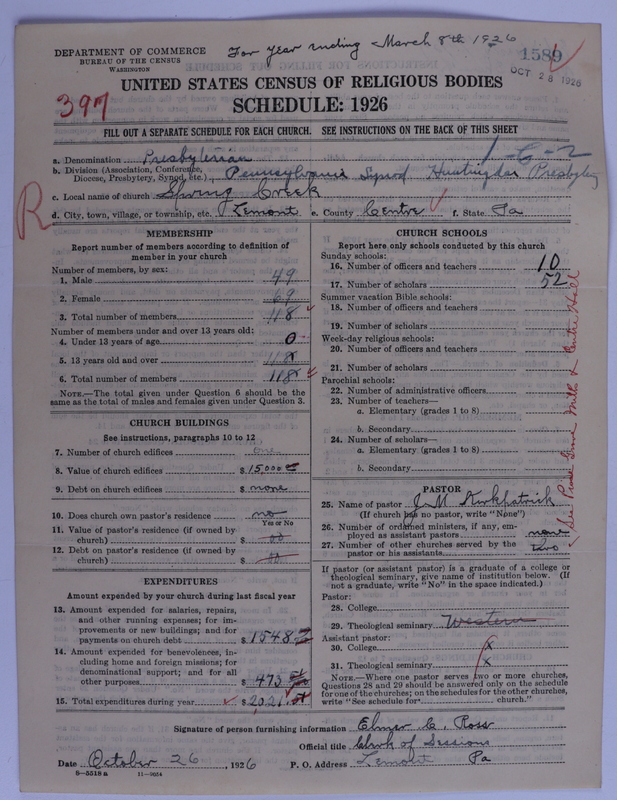 DEPARTMENT OF COMMERCE
BUREAU OF THE CENSUS
WASHINGTON
For year ending March 8th 1926
1589
OCT 28 1926
UNITED STATES CENSUS OF RELIGIOUS BODIES
SCHEDULE: 1926
397
FILL OUT A SEPARATE SCHEDULE FOR EACH CHURCH. SEE INSTRUCTIONS ON THE BACK OF THIS SHEET
1-6-2
a. Denomination Presbyterian
b. Division (Association, Conference, Diocese, Presbytery, Synod, etc.) Pennsylvania Synod Huntingdon Presbytery
c. Local name of church Spring Creek
R
d. City, town, village, or township, etc. Lemont e. County Centre f. State Pa
MEMBERSHIP
Report number of members according to definition of
member in your church
Number of members, by sex:
1. Male 49
2. Female 69
3. Total number of members 118
Number of members under and over 13 years old:
4. Under 13 years of age 0
5. 13 years old and over 118
6. Total number of members 118
NOTE.—The total given under Question 6 should be
same as the total of males and females given under Question 3.
CHURCH BUILDINGS
See instructions, paragraphs 10 to 12
7. Number of church edifices one
8. Value of church edifices $15,000
9. Debt on church edifices $ none
10. Does church own pastor's residence no
Yes or No
11. Value of pastor's residence (if owned by
church) $ 00
12. Debt on pastor's residence (if owned by
church) $ 00
EXPENDITURES
Amount expended by your church during last fiscal year
13. Amount expended for salaries, repairs,
and other running expenses; for im-
provements or new buildings; and for
payments on church debt $1548
14. Amount expended for benevolences, in-
cluding home and foreign missions; for
denominational support; and for all
other purposes $ 473
15. Total expenditures during year $2,021
CHURCH SCHOOLS
Report here only schools conducted by this church
Sunday schools:
16. Number of officers and teachers 10
17. Number of scholars 52
Summer vacation Bible schools:
18. Number of officers and teachers
19. Number of scholars
Week-day religious schools:
20. Number of officers and teachers
21. Number of scholars
Parochial schools:
22. Number of administrative officers
23. Number of teachers—
a. Elementary (grades 1 to 8)
b. Secondary
24. Number of scholars—
a. Elementary (grades 1 to 8)
b. Secondary
PASTOR
25. Name of pastor J M Kirkpatrick
(If church has no pastor, write "None")
26. Number of ordained ministers, if any, em-
ployed as assistant pastors none
27. Number of other churches served by the
pastor or his assistants two
Mills & Centre Hall
If pastor (or assistant pastor) is a graduate of a college or
theological seminary, give name of institution below. (If
not a graduate, write "No" in the space indicated.)
Pastor:
28. College
29. Theological seminary Western
Assistant pastor:
30. College x
31. Theological seminary x
NOTE.—Where one pastor serves two or more churches,
Questions 28 and 29 should be answered only on the schedule
for one of the churches; on the schedules for the other churches,
write "See schedule for church."
Signature of person furnishing information Elmer C. Ross
Official title Clerk of Sessions
Date October 26, 1926 P. O. Address Lemont Pa
8-5518 a 11-9054